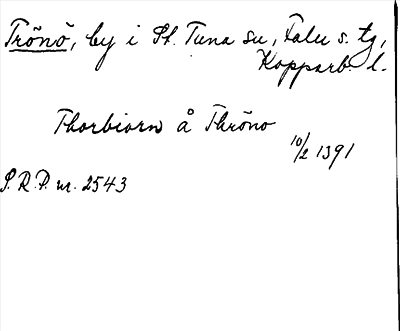 Trönö, by i St. Tuna sn, Falu s. tg,
Kopparb. l.
Thorbiorn å Thröno
10/2 1391
S.R.P. nr. 2543